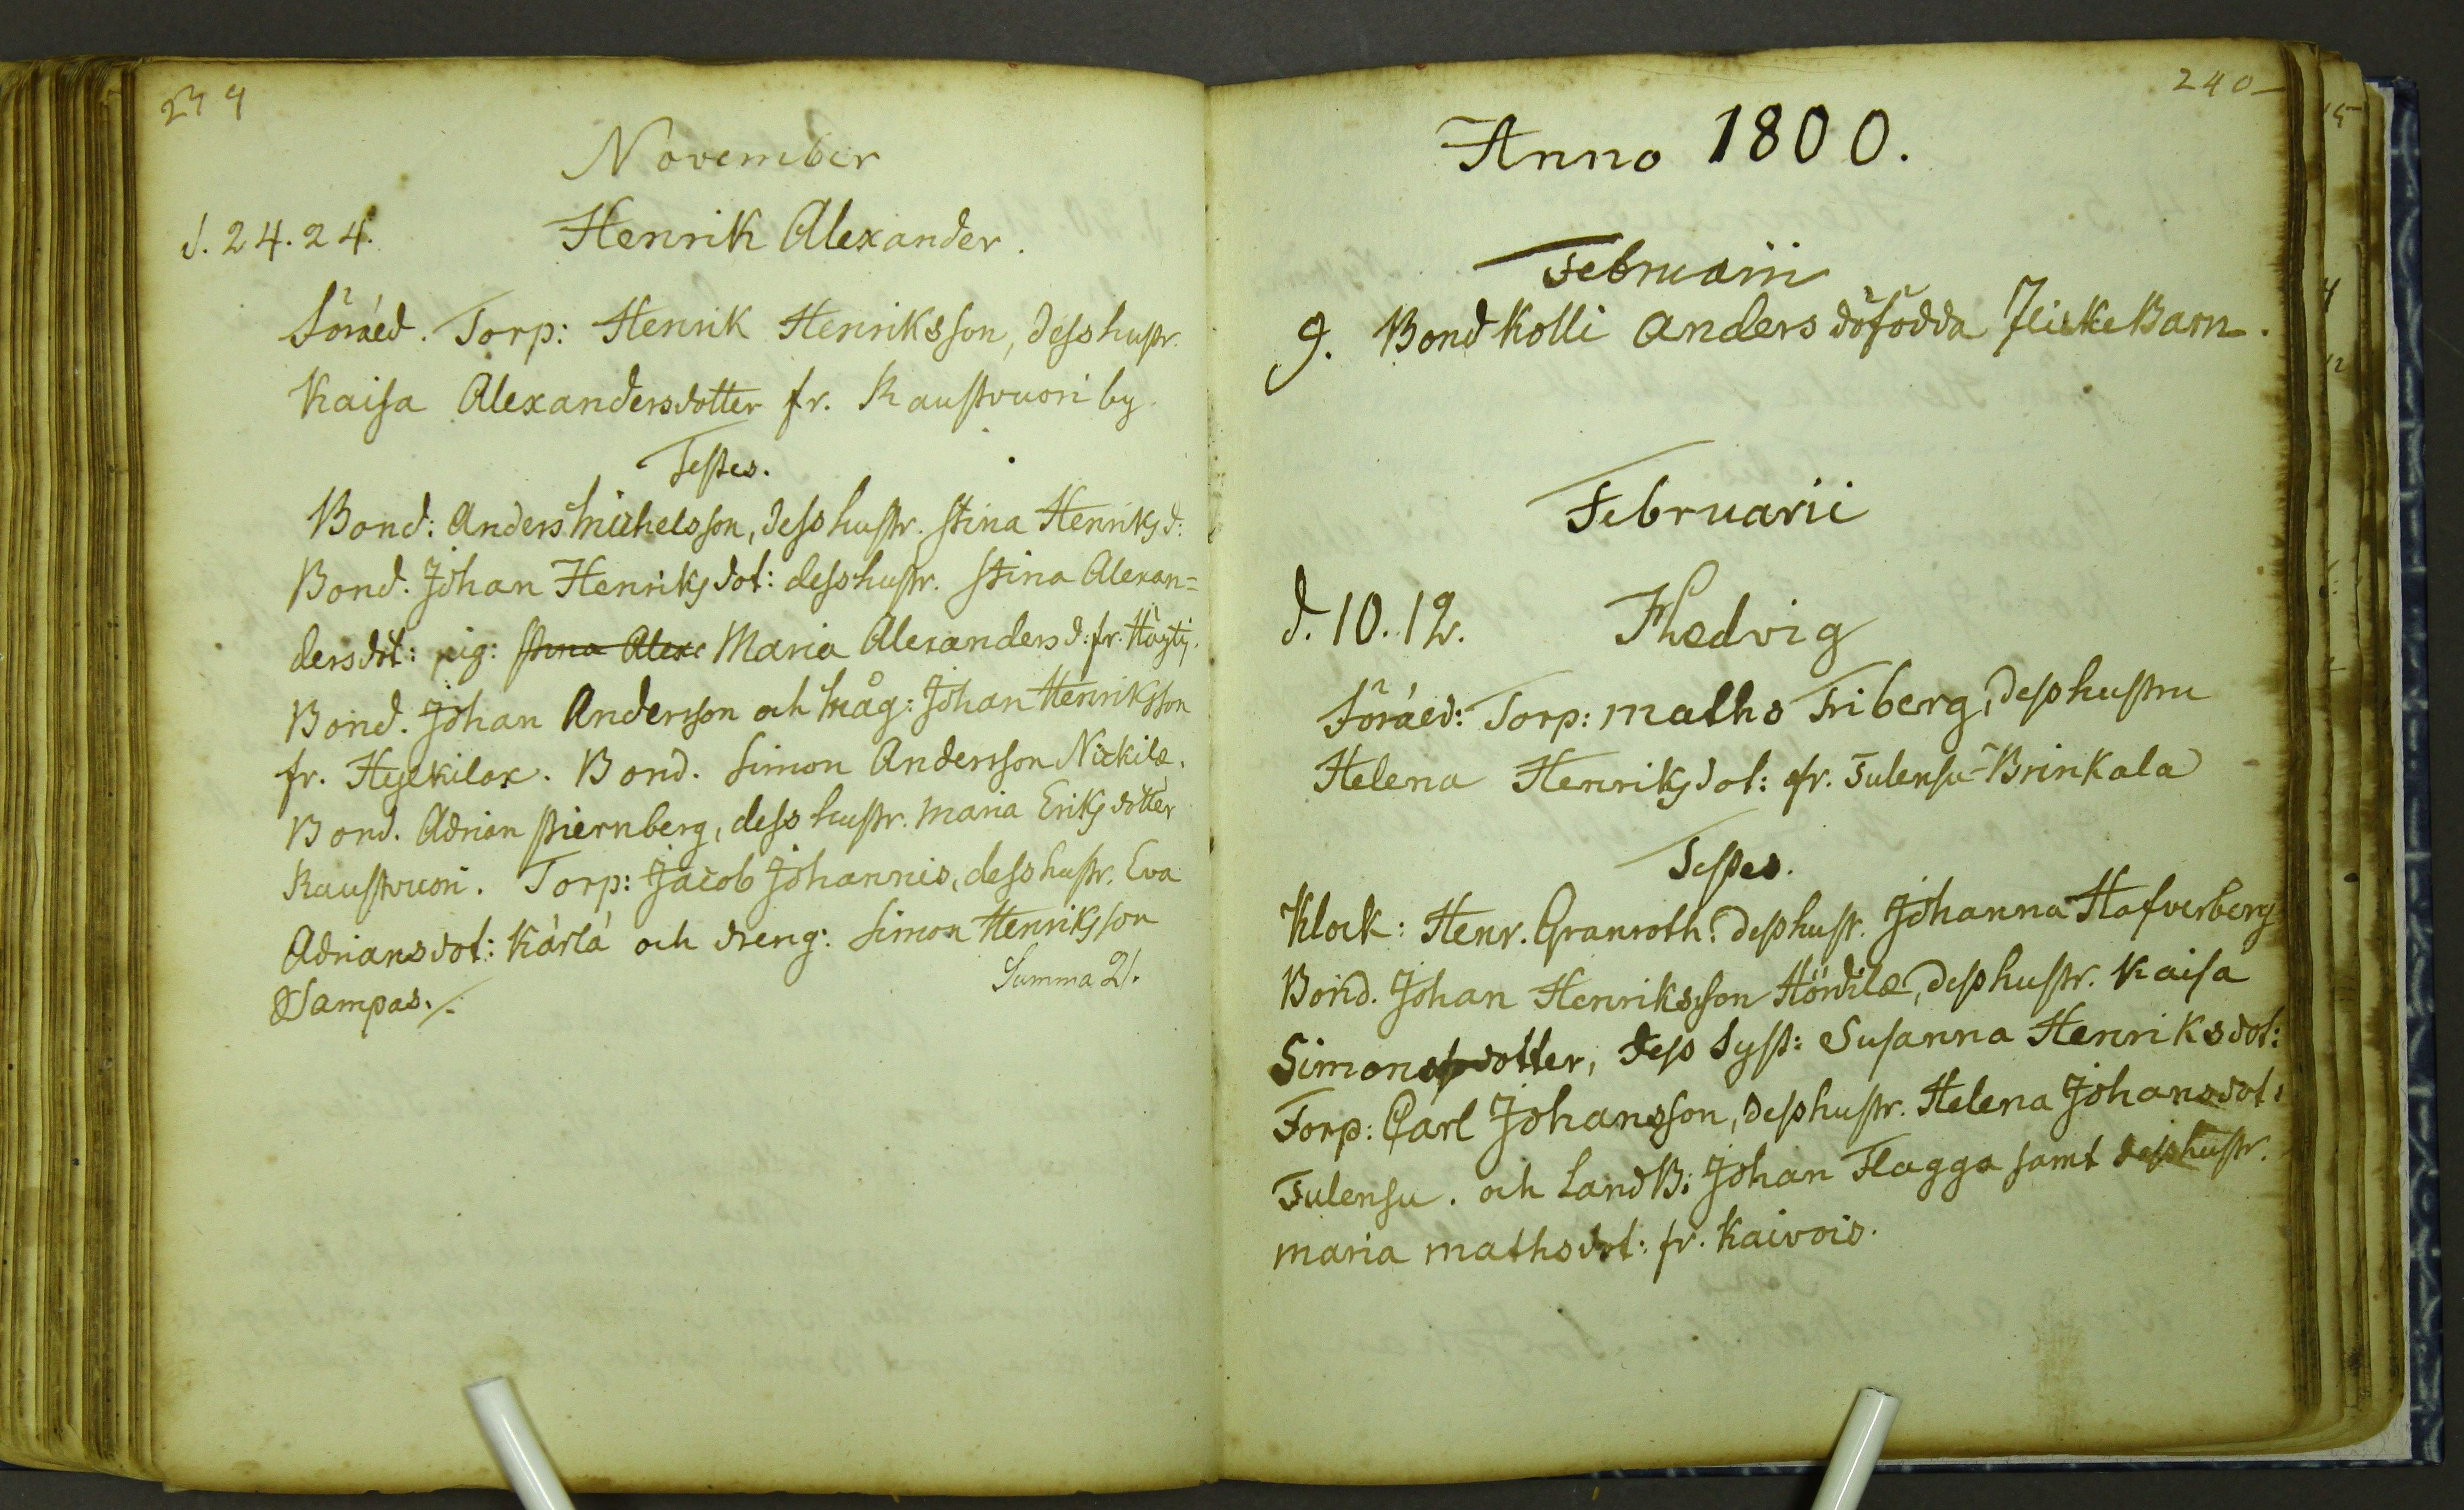 239
November
d. 24. 24. Henrik Alexander.
Föräld. Torp: Henrik Henriksson, dess hustr.
Kaisa Alexandersdotter fr. Raustvuori by
Testes.
Bond: Anders Michelsson, dess hustr. Stina Henriksd:
Bond. Johan Henriksdot: dess hustr. Stina Alexan=
dersdot: pig: Stina Alex: Maria Alexandersd: fr.
Bond. Johan Andersson och Måg: Johan Henriksson
fr. Bond. Simon Andersson Nickilæ.
Bond. Adrian Stiernberg, dess hustr. Maria Eriksdotter
Raustvuori. Torp: Jacob Johannis, dess hustr. Eva
Adriansdot: Kärlä och dreng: Simon Henriksson
Sampas./.
Summa 21.
240
Anno 1800.
Februarii
9. Bond Kolli Anders döfödda FlickeBarn.
Februarii
d. 10. 12. Hedvig
Föräld: Torp: Maths Friberg, dess hustru
Helena Henriksdot: fr. Tulensu-Brinkala
Testes.
Klock: Henr. Granroth: dess hustr. Johanna Hafverberg
Bond. Johan Henriksson dess hustr. Kaisa
Simonsdotter, dess Syst: Susanna Henriksdot:
Torp: Carl Johansson, dess hustr. Helena Johansdot:
Tulensu. och LandB: Johan Flagga samt dess hustr.
Maria Mathsdot: fr. Kaivois.